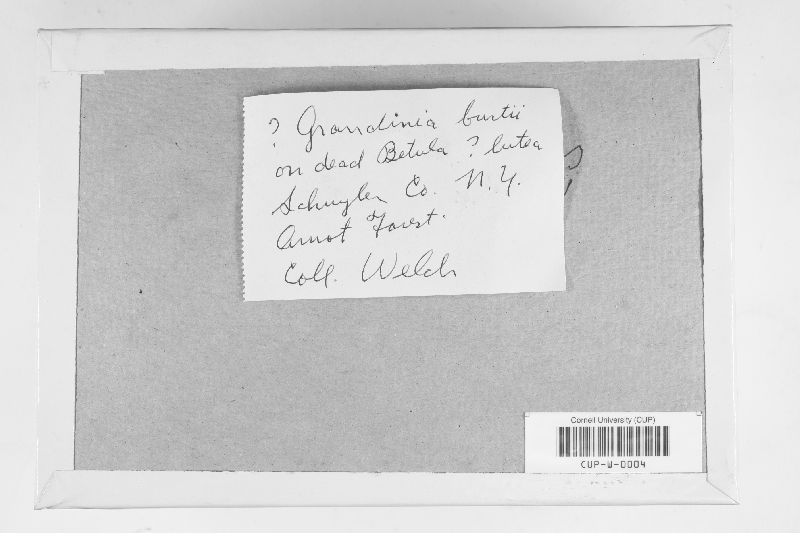 ? Grandinia burtii
on dead Betula ? lutea
Schuyler Co. N.Y.
Arnot Forest.
Coll. Welch
Cornell University (CUP)
CUP-W-0004